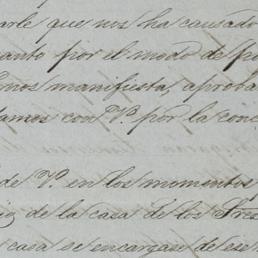 arle que nos ha causado
anto por el modo de p
nos manifiesta, aproba
tamos con V. por la conc
de V. en los momentos
de la casa de los Sres
casa se encargase de ese